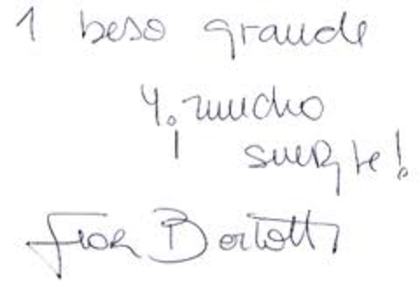 1 beso grande
y ¡mucho
suerte!
Flor Bertotti